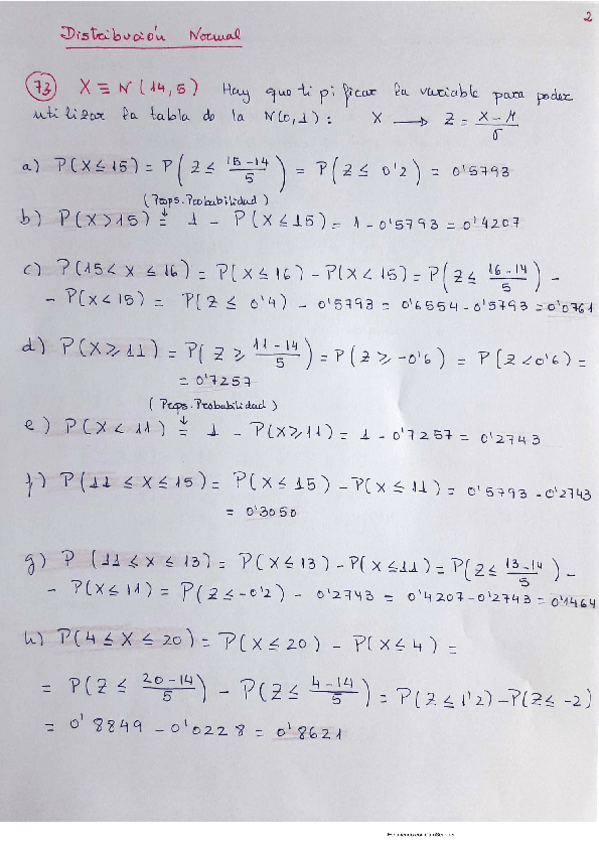 2
Distribución Normal
73 X ≡ N(14,5) Hay que tipificar la variable para poder
utilizar la tabla de la N(0,1): X ⟶ Z = (X-μ)/σ
a) P(X≤15) = P(Z ≤ (15-14)/5) = P(Z ≤ 0'2) = 0'5793
(Props. Probabilidad)
b) P(X>15) = 1 - P(X≤15) = 1 - 0'5793 = 0'4207
c) P(15<X≤16) = P(X≤16) - P(X<15) = P(Z ≤ (16-14)/5) -
- P(X<15) = P(Z ≤ 0'4) - 0'5793 = 0'6554 - 0'5793 = 0'0761
d) P(X≥11) = P(Z ≥ (11-14)/5) = P(Z ≥ -0'6) = P(Z<0'6) =
= 0'7257
(Props. Probabilidad)
e) P(X<11) = 1 - P(X≥11) = 1 - 0'7257 = 0'2743
f) P(11≤X≤15) = P(X≤15) - P(X≤11) = 0'5793 - 0'2743
= 0'3050
g) P(11≤X≤13) = P(X≤13) - P(X≤11) = P(Z ≤ (13-14)/5) -
- P(X≤11) = P(Z≤-0'2) - 0'2743 = 0'4207 - 0'2743 = 0'1464
h) P(4≤X≤20) = P(X≤20) - P(X≤4) =
= P(Z ≤ (20-14)/5) - P(Z ≤ (4-14)/5) = P(Z≤1'2) - P(Z≤-2)
= 0'8849 - 0'0228 = 0'8621